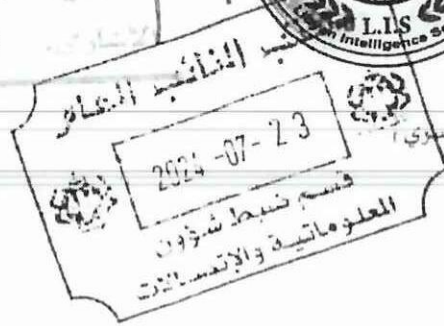 L.I.S
Intelligence
النائب العام
2024 -07- 2 3
قسم ضبط شؤون
المعلوماتية والإتصالات